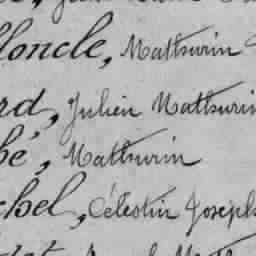 loncle, Mathurin
rd, Julien Mathurin
bé, Mathurin
chel, Célestin Joseph